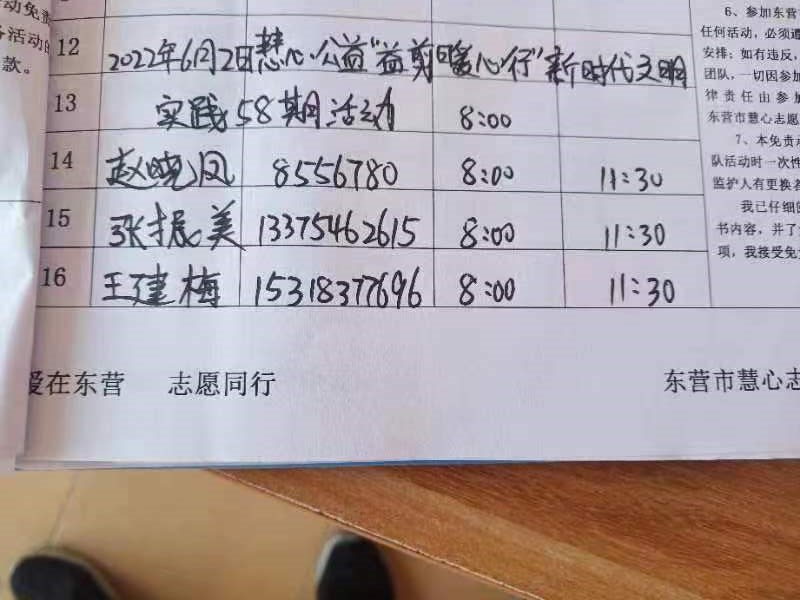 动免费
活动的
款。
12 2022年6月2日慧心公益“益剪暖心行”新时代文明
13 实践58期活动 8:00
14 赵晓凤 8556780 8:00 11:30
15 张振美 13375462615 8:00 11:30
16 王建梅 15318377696 8:00 11:30
爱在东营 志愿同行
东营市慧心志
6、参加东营
任何活动，必须遵
安排；如有违反，
团队，一切因参加
律责任由参加
东营市慧心志愿
7、本免责
队活动时一次性
监护人有更换
我已仔细
书内容，并了
项，我接受免